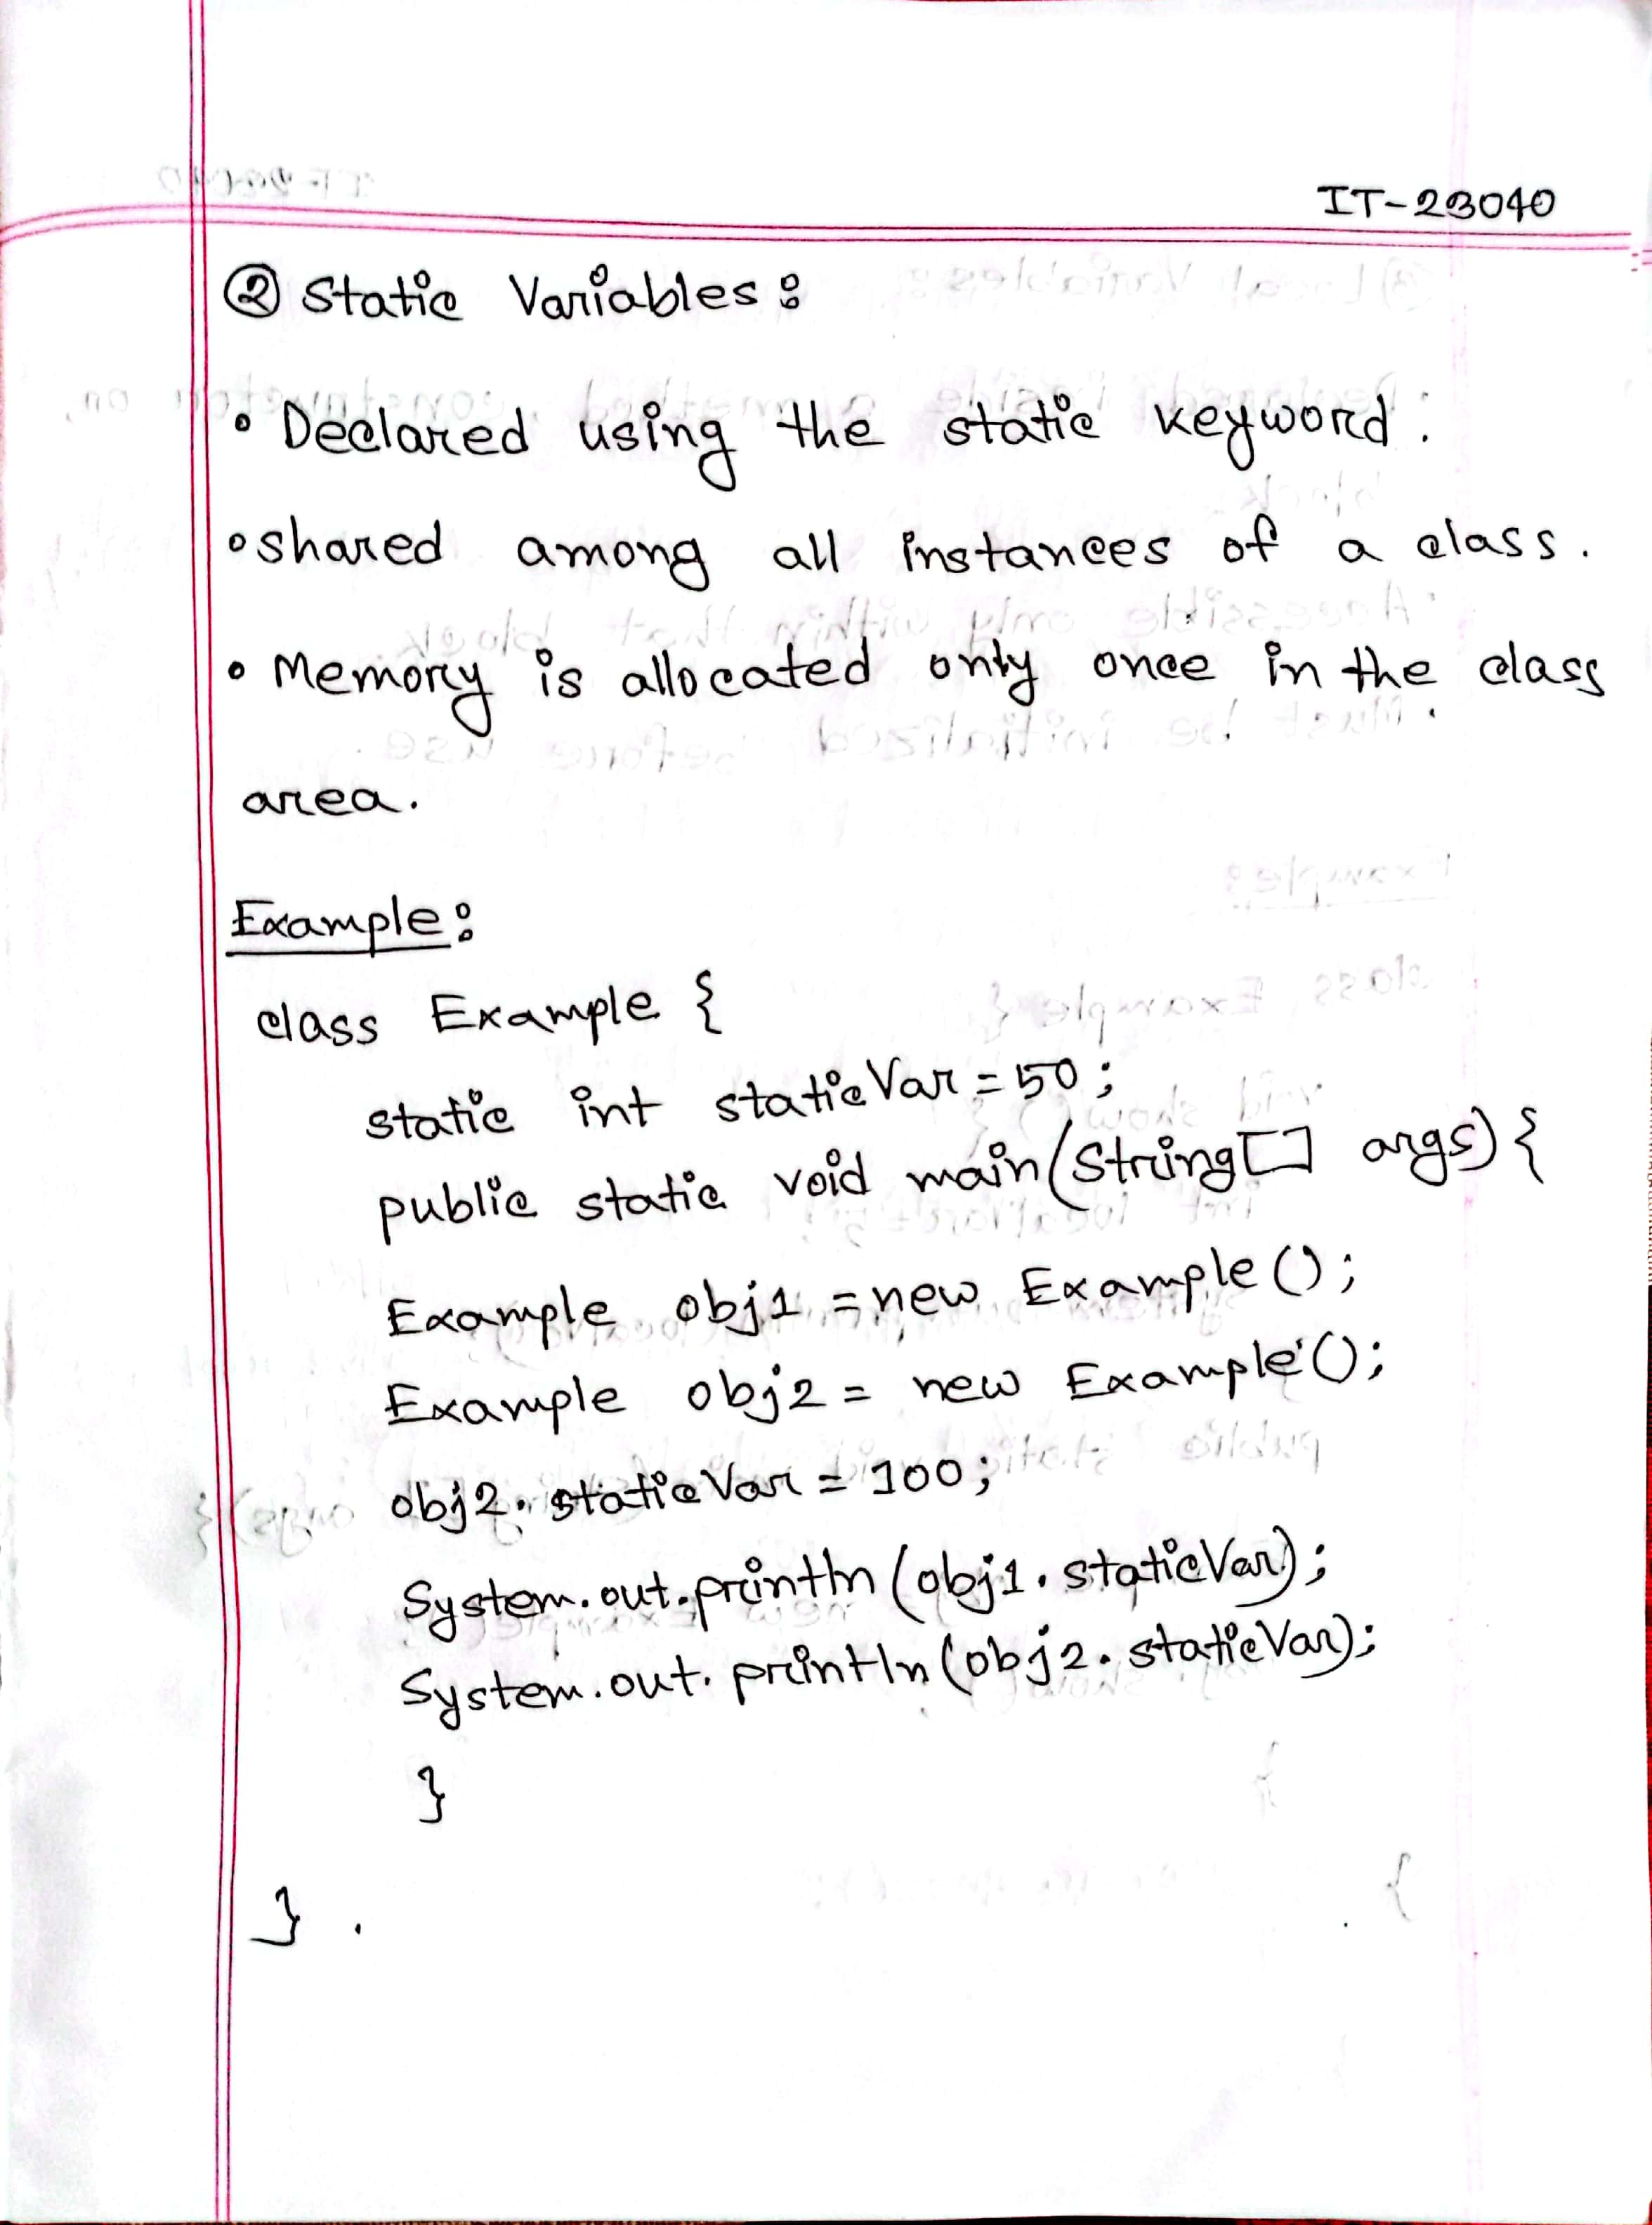 IT-23040
② Static Variables:
• Declared using the static keyword.
• shared among all instances of a class.
• Memory is allocated only once in the class
area.
Example:
class Example {
static int staticVar = 50;
public static void main(String[] args) {
Example obj1 = new Example();
Example obj2 = new Example();
obj2.staticVar = 100;
System.out.println(obj1.staticVar);
System.out.println(obj2.staticVar);
}
}.